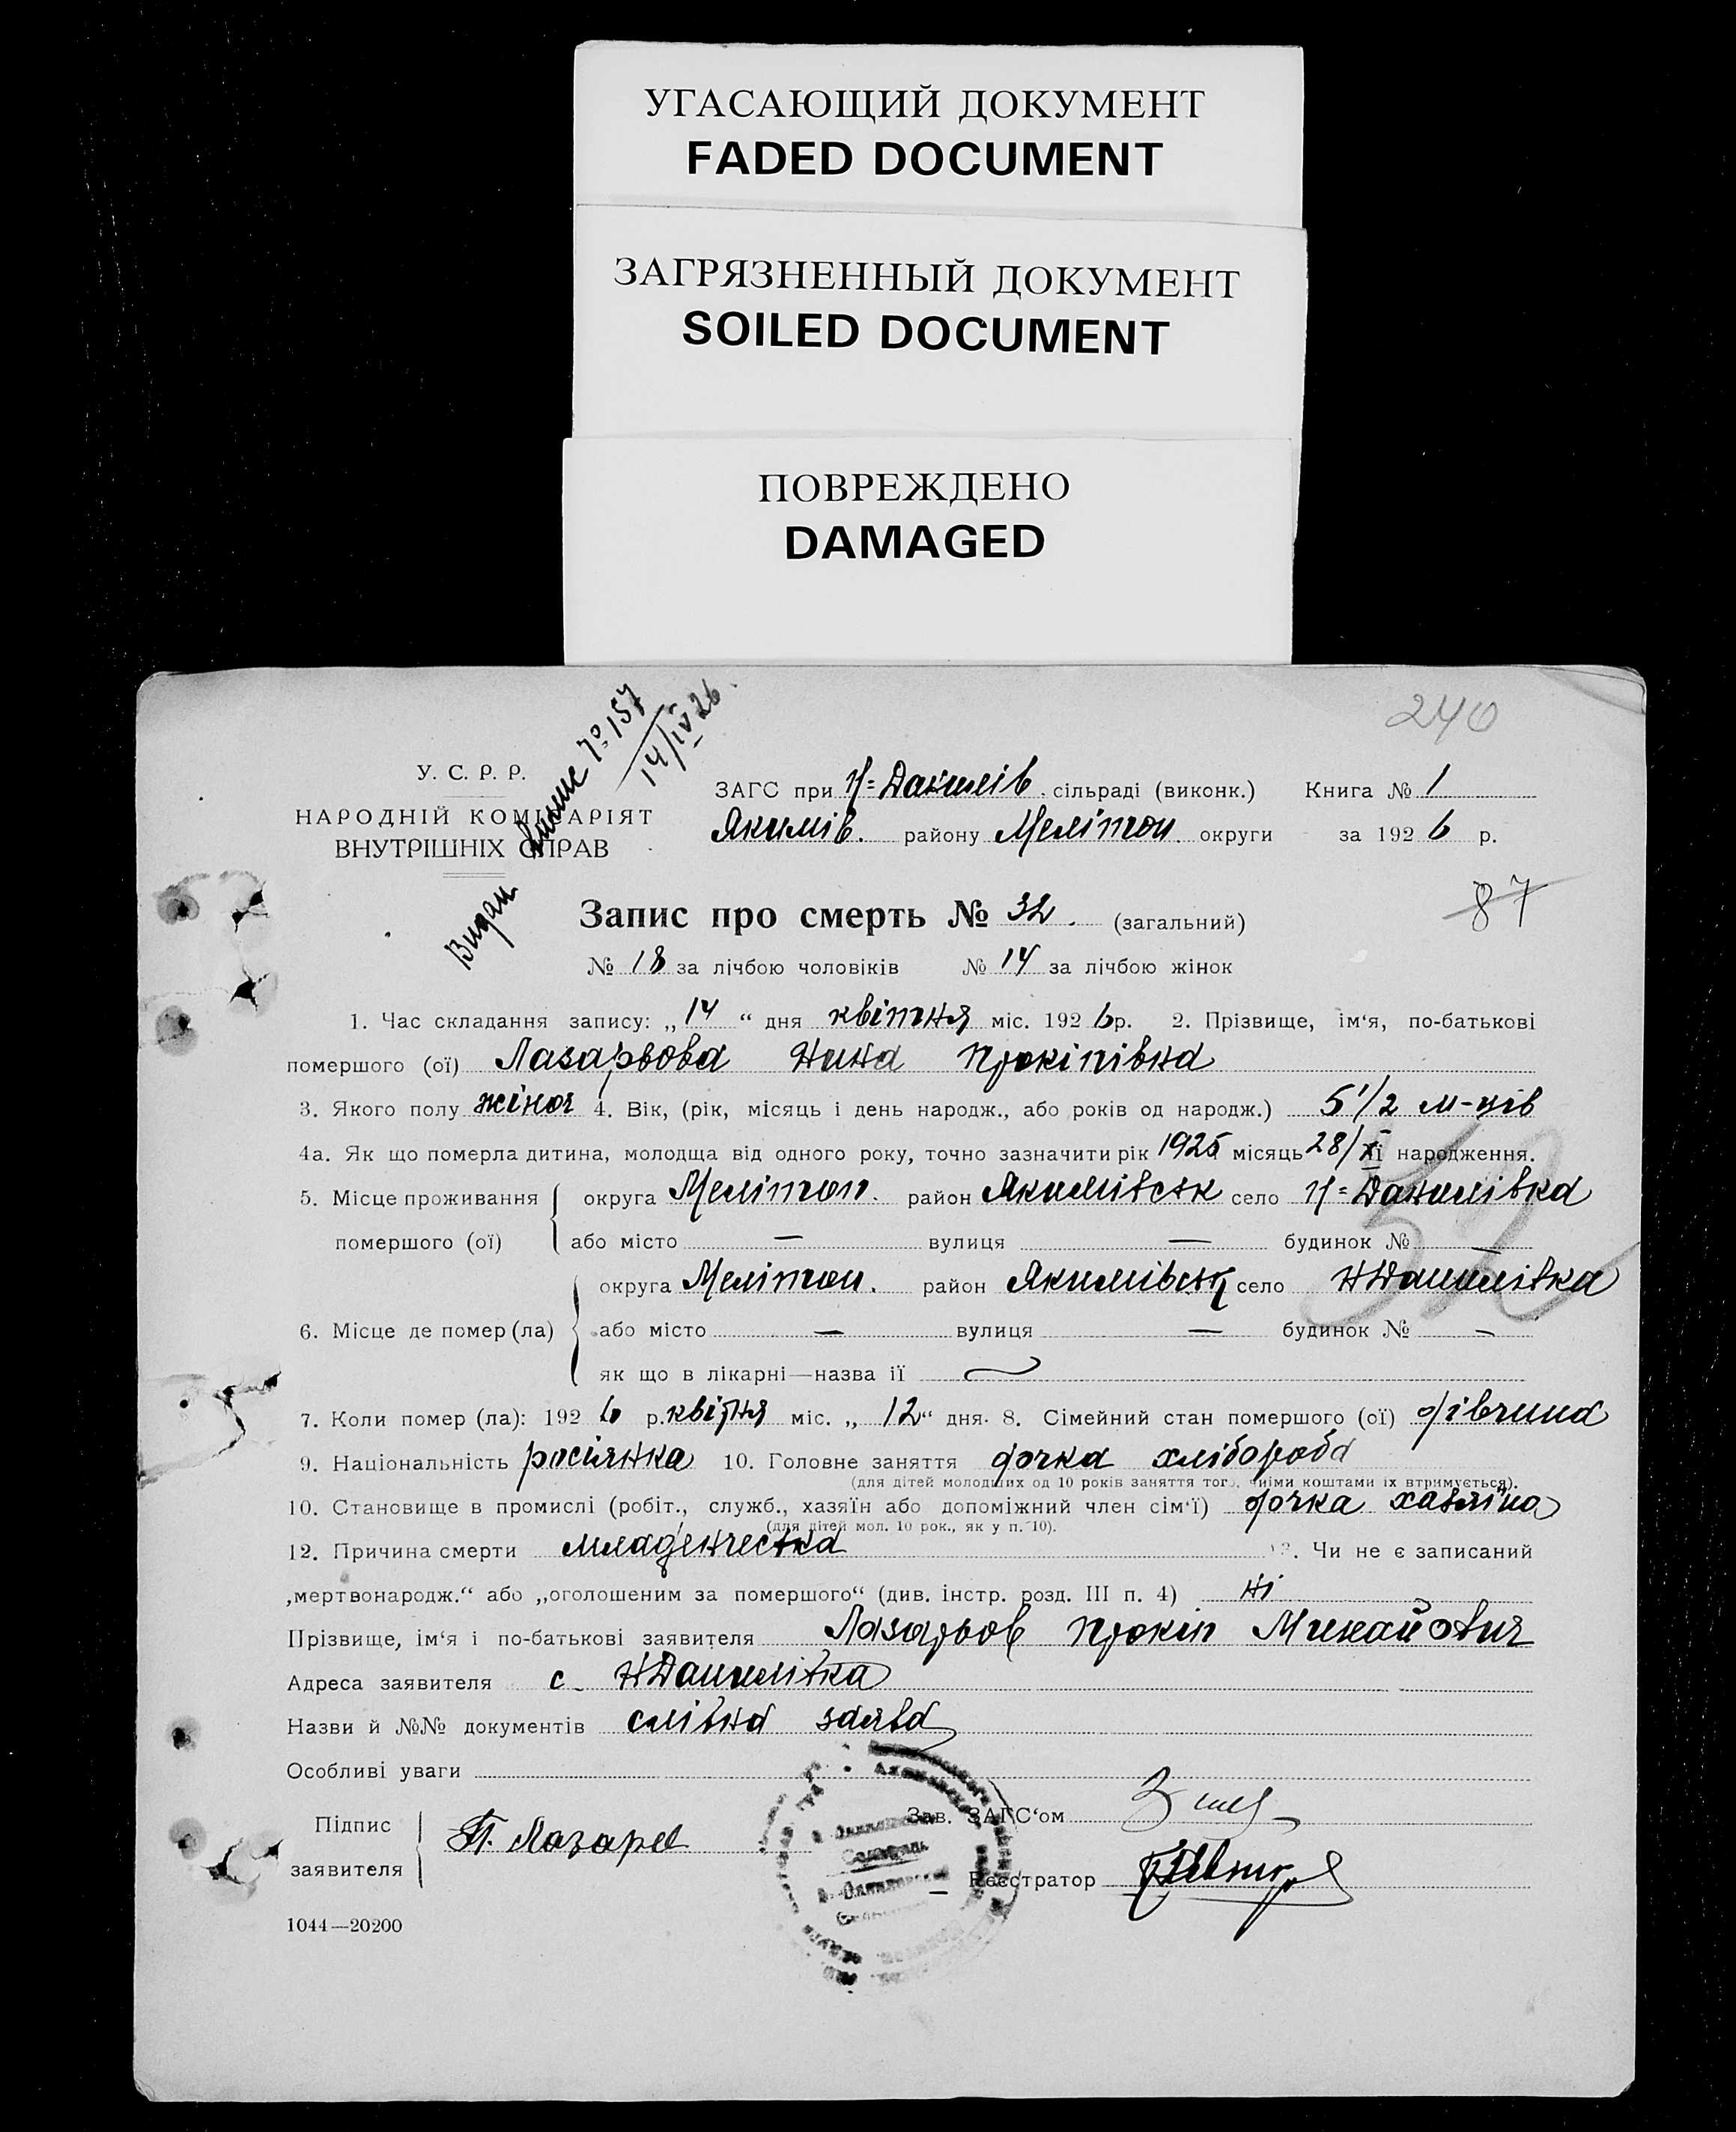 УГАСАЮЩИЙ ДОКУМЕНТ
FADED DOCUMENT
ЗАГРЯЗНЕННЫЙ ДОКУМЕНТ
SOILED DOCUMENT
ПОВРЕЖДЕНО
DAMAGED
240
Видан № 157
14/IV 26
У. С. Р. Р.
НАРОДНІЙ КОМІСАРІЯТ
ВНУТРІШНІХ СПРАВ
ЗАГС при Н=Данилів. сільраді (виконк.) Книга № 1
Якимів. району Мелітоп. округи за 1926 р.
87
Запис про смерть № 32. (загальний)
№ 18 за лічбою чоловіків № 14 за лічбою жінок
1. Час складання запису: „14“ дня квітня міс. 1926 р. 2. Прізвище, ім‘я, по-батькові
помершого (ої) Лазарьова Нина Прокіпівна
3. Якого полу жіноч 4. Вік, (рік, місяць і день народж., або років од народж.) 5 1/2 м-ців
4а. Як що померла дитина, молодща від одного року, точно зазначити рік 1925 місяць 28/XI народження.
52
5. Місце проживання округа Мелітоп. район Якимівськ село Н=Данилівка
помершого (ої) або місто — вулиця — будинок № —
округа Мелітоп. район Якимівськ село Н Данилівка
6. Місце де помер (ла) або місто — вулиця — будинок № —
як що в лікарні—назва її
7. Коли помер (ла): 1926 р. квітня міс. „12“ дня. 8. Сімейний стан помершого (ої) дівчина
9. Національність росіянка 10. Головне заняття дочка хлібороба
(для дітей молодших од 10 років заняття того, чиїми коштами їх втримується).
10. Становище в промислі (робіт., служб., хазяїн або допоміжний член сім‘ї) дочка хазяїна
(для дітей мол. 10 рок., як у п. 10).
12. Причина смерти младенческа 13. Чи не є записаний
„мертвонародж.“ або „оголошеним за помершого“ (див. інстр. розд. III п. 4) Ні
Прізвище, ім‘я і по-батькові заявителя Лазарьов Прокіп Михайович
Адреса заявителя с. Н Данилівка
Назви й №№ документів слівна заява
Особливі уваги
Підпис
заявителя
П. Лазарев
Зав. ЗАГС‘ом
Реєстратор
1044—20200